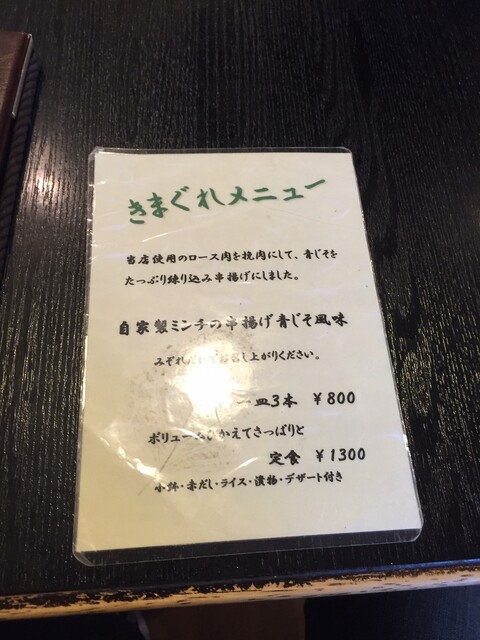 きまぐれメニュー
当店使用のロース肉を挽肉にして、青じそを
たっぷり練り込み串揚げにしました。
自家製ミンチの串揚げ青じそ風味
みぞれ お召し上がりください。
一皿3本 ￥800
ボリュームひかえてさっぱりと
定食 ￥1300
小鉢・赤だし・ライス・漬物・デザート付き